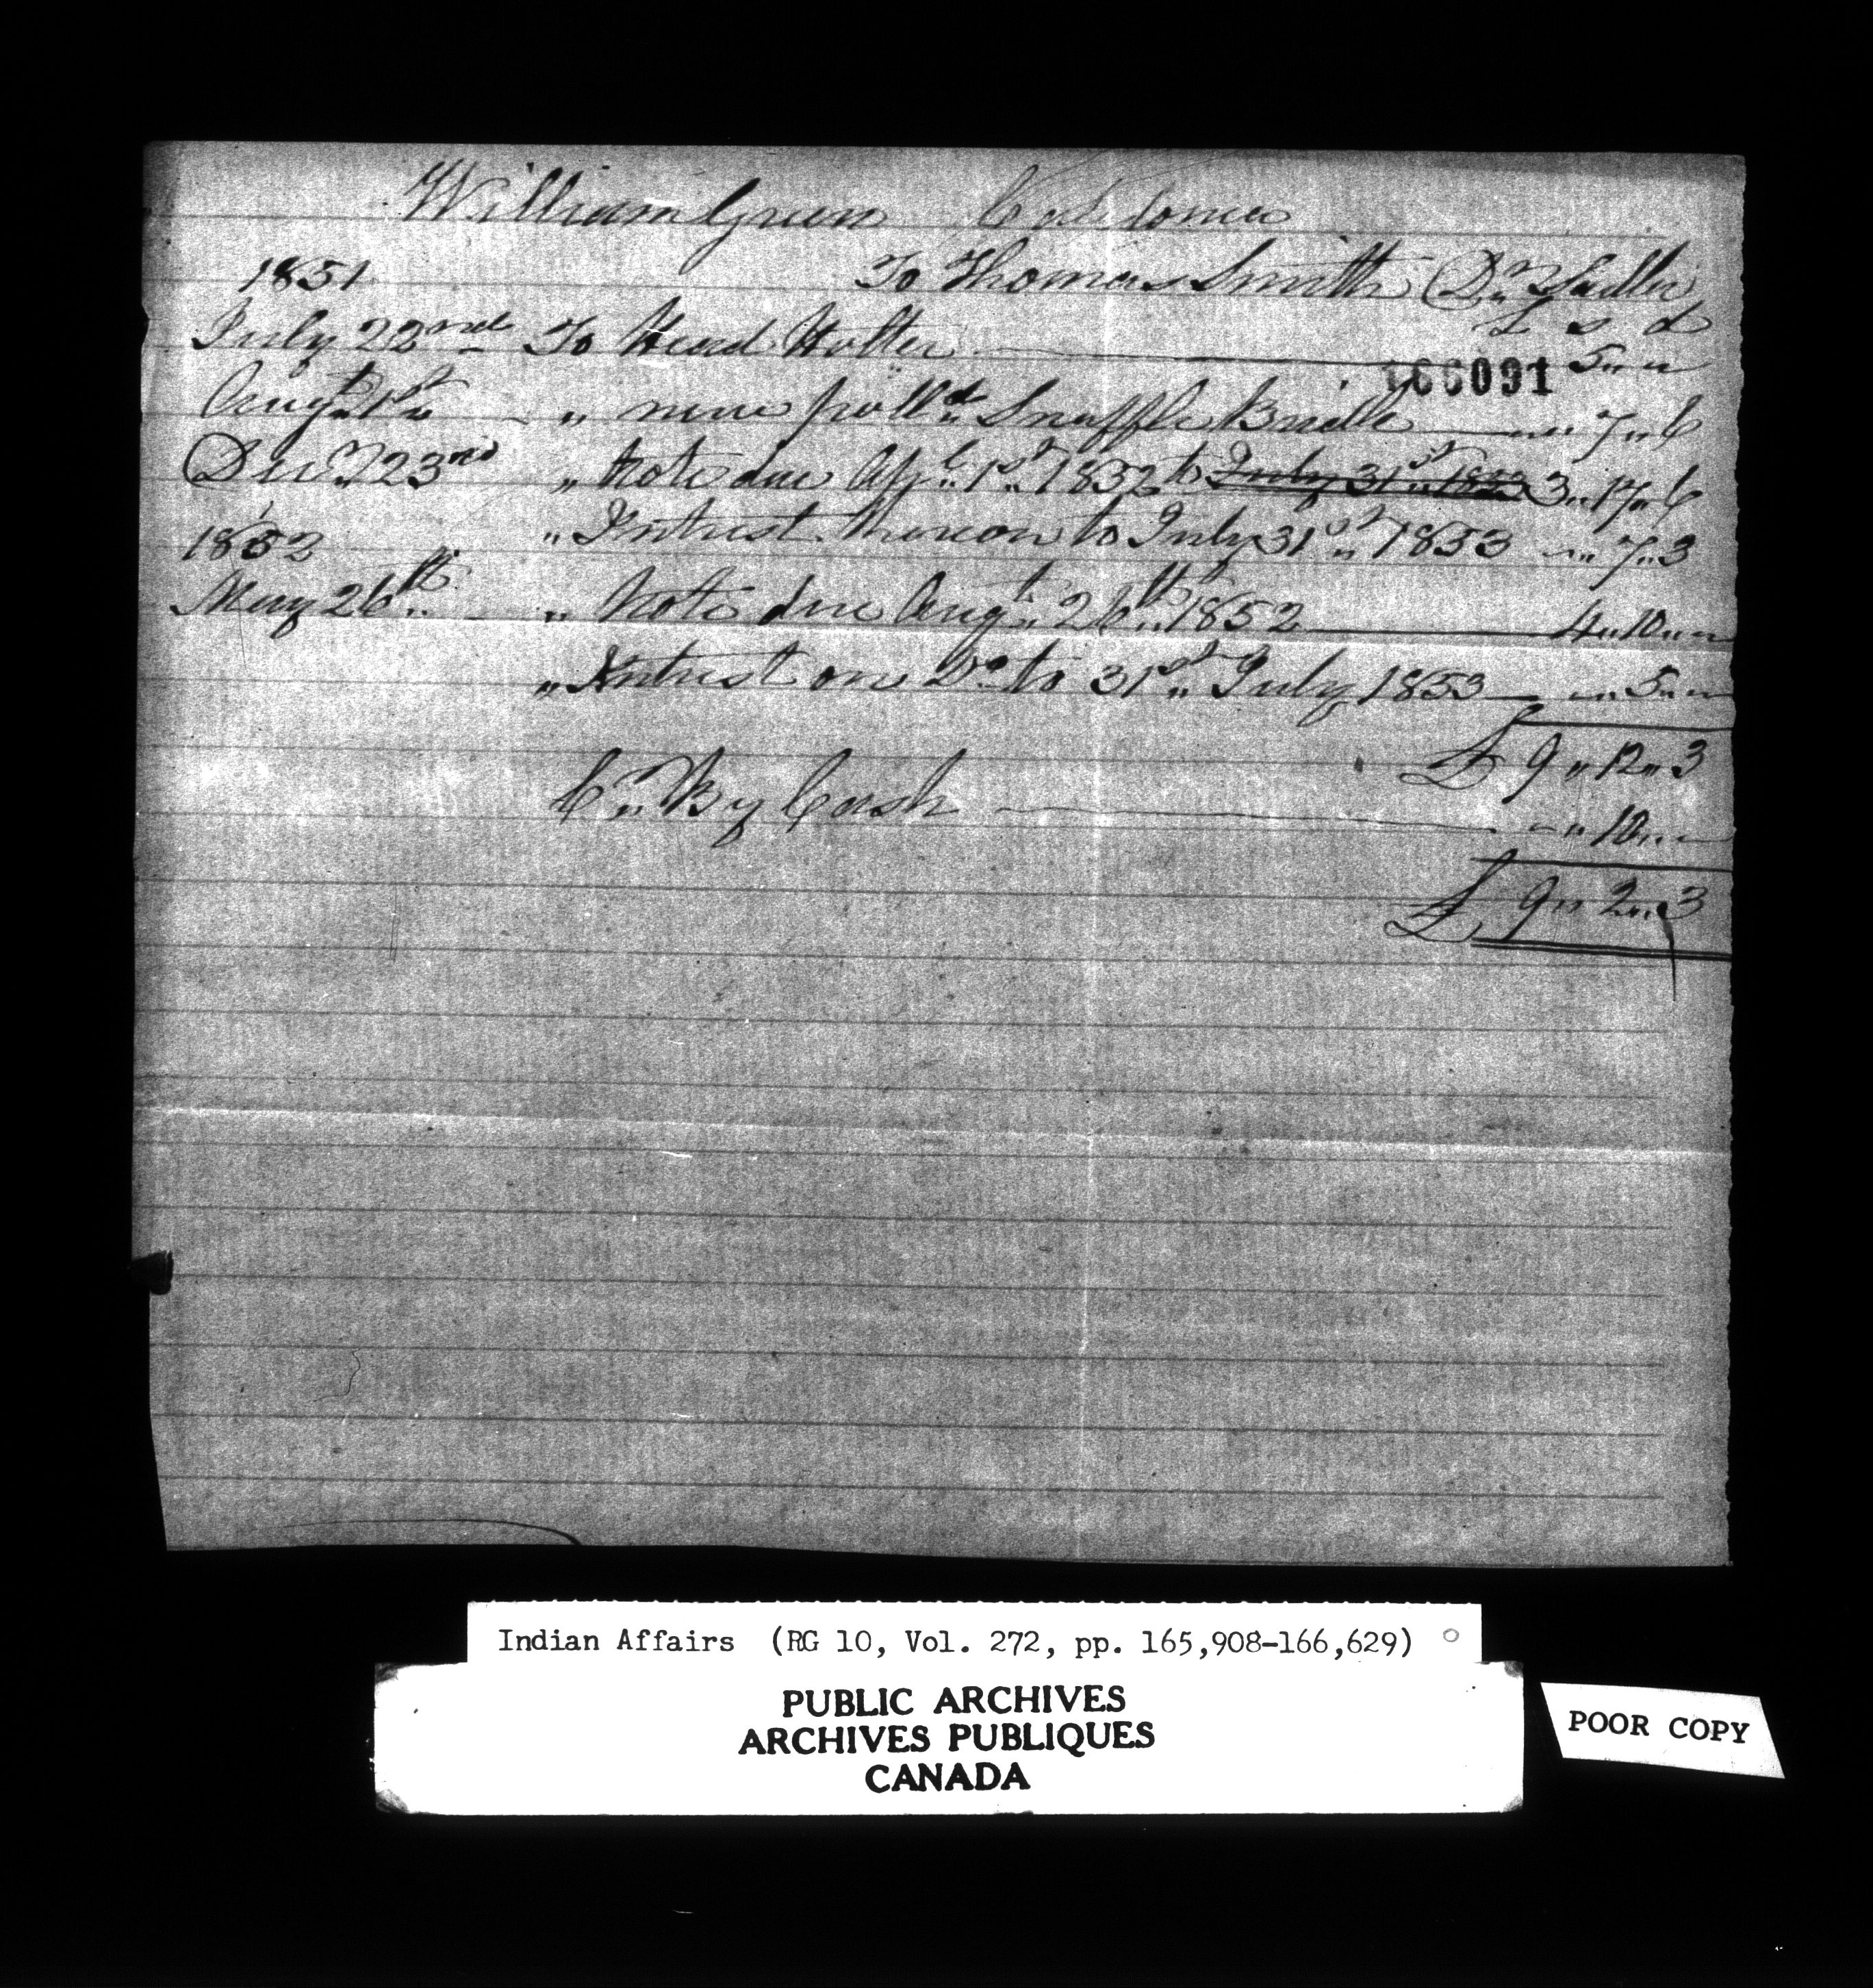 William Green Caledonia
1851 To Thomas Smith Dr. Sadler
£ s d
July 22nd To Head Halter 5 " "
166091
Augt 1st " new poll'd Snaffle Bridle " 7 " 6
Decr 23rd " Note due Apl 1st 1852 to July 31st 1853 3 " 17 " 6
" Intrest thereon to July 31st 1853 " 7 " 3
1852
May 26th " Note due Augt 26th 1852 4 " 10 " "
" Intrest on Do to 31st July 1853 " 5 " "
£ 9 " 12 " 3
Cr By Cash " 10 " "
£ 9 " 2 " 3
Indian Affairs (RG 10, Vol. 272, pp. 165,908-166,629)
PUBLIC ARCHIVES
ARCHIVES PUBLIQUES
CANADA
POOR COPY